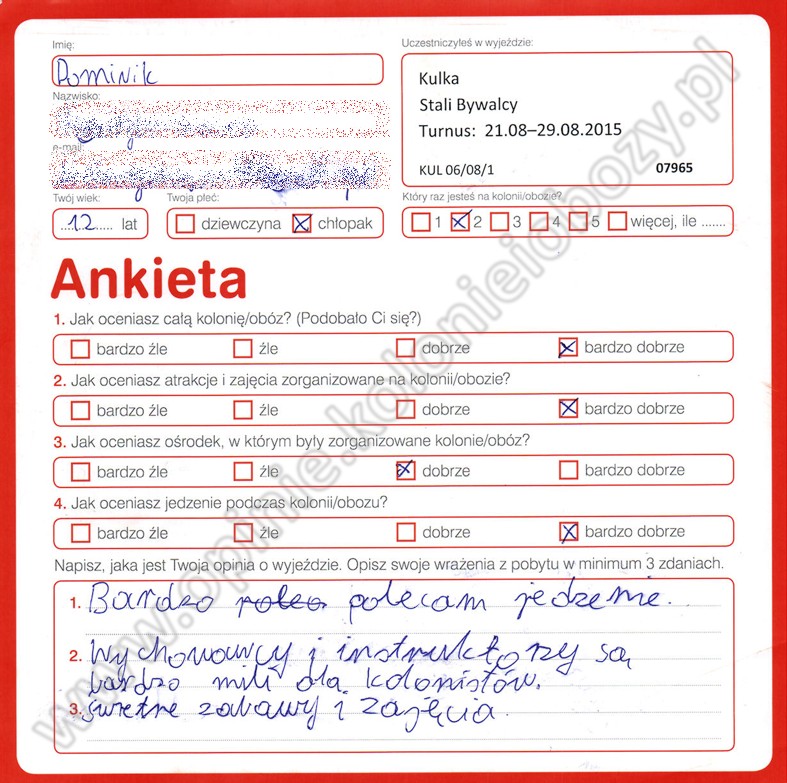 Imię:
Dominik
Uczestniczyłeś w wyjeździe:
Kulka
Stali Bywalcy
Turnus: 21.08–29.08.2015
KUL 06/08/1 07965
Nazwisko:
e-mail:
Twój wiek:
12 lat
Twoja płeć:
dziewczyna chłopak
Który raz jesteś na kolonii/obozie?
1 2 3 4 5 więcej, ile .......
Ankieta
1. Jak oceniasz całą kolonię/obóz? (Podobało Ci się?)
bardzo źle źle dobrze bardzo dobrze
2. Jak oceniasz atrakcje i zajęcia zorganizowane na kolonii/obozie?
bardzo źle źle dobrze bardzo dobrze
3. Jak oceniasz ośrodek, w którym były zorganizowane kolonie/obóz?
bardzo źle źle dobrze bardzo dobrze
4. Jak oceniasz jedzenie podczas kolonii/obozu?
bardzo źle źle dobrze bardzo dobrze
Napisz, jaka jest Twoja opinia o wyjeździe. Opisz swoje wrażenia z pobytu w minimum 3 zdaniach.
1. Bardzo polecam jedzenie.
2. Wychowawcy i instruktorzy są
bardzo mili dla kolonistów.
3. świetne zabawy i zajęcia.
www.opinie.kolonieiobozy.pl